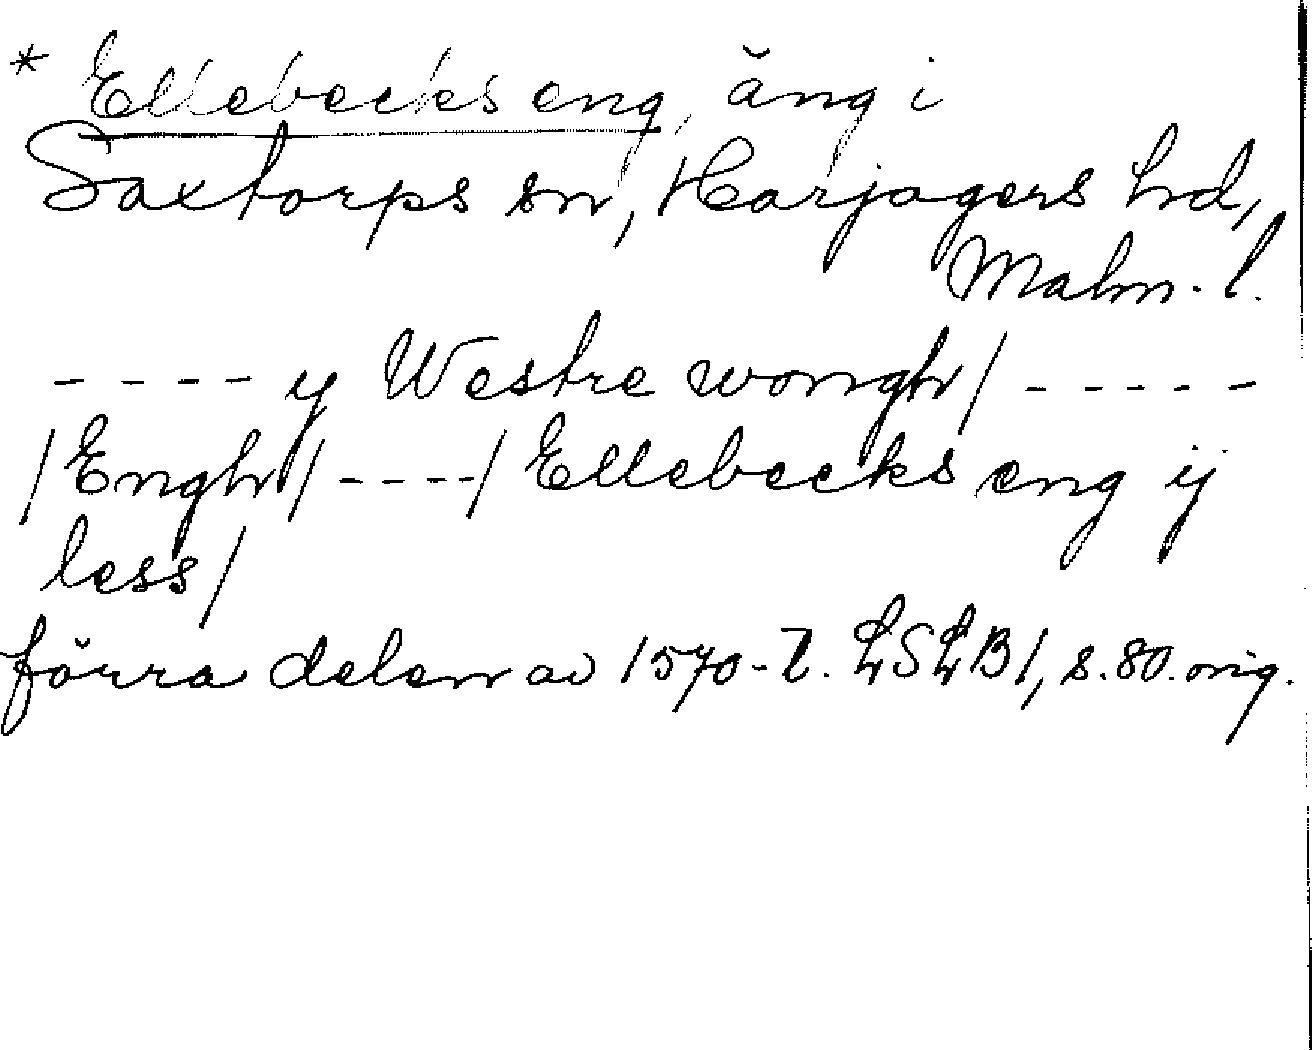 * Ellebecks eng, äng i
Saxtorps sn, Harjagers hd,
Malm. l.
---- y Westre wongh/ -----
/Engh/ ----/ Ellebecks eng ij
less/
förra delen av 1570-t. LSLB 1, s. 80. orig.